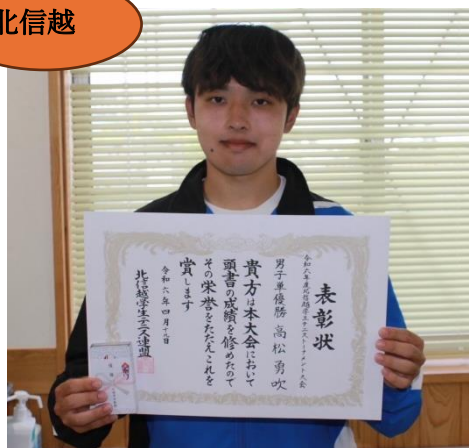 北信越
表彰状
令和六年度北信越学生テニストーナメント大会
男子単優勝 高松勇吹
貴方は本大会において
頭書の成績を修めたので
その栄誉をたたえこれを
賞します
令和六年四月
北信越学生テニス連盟